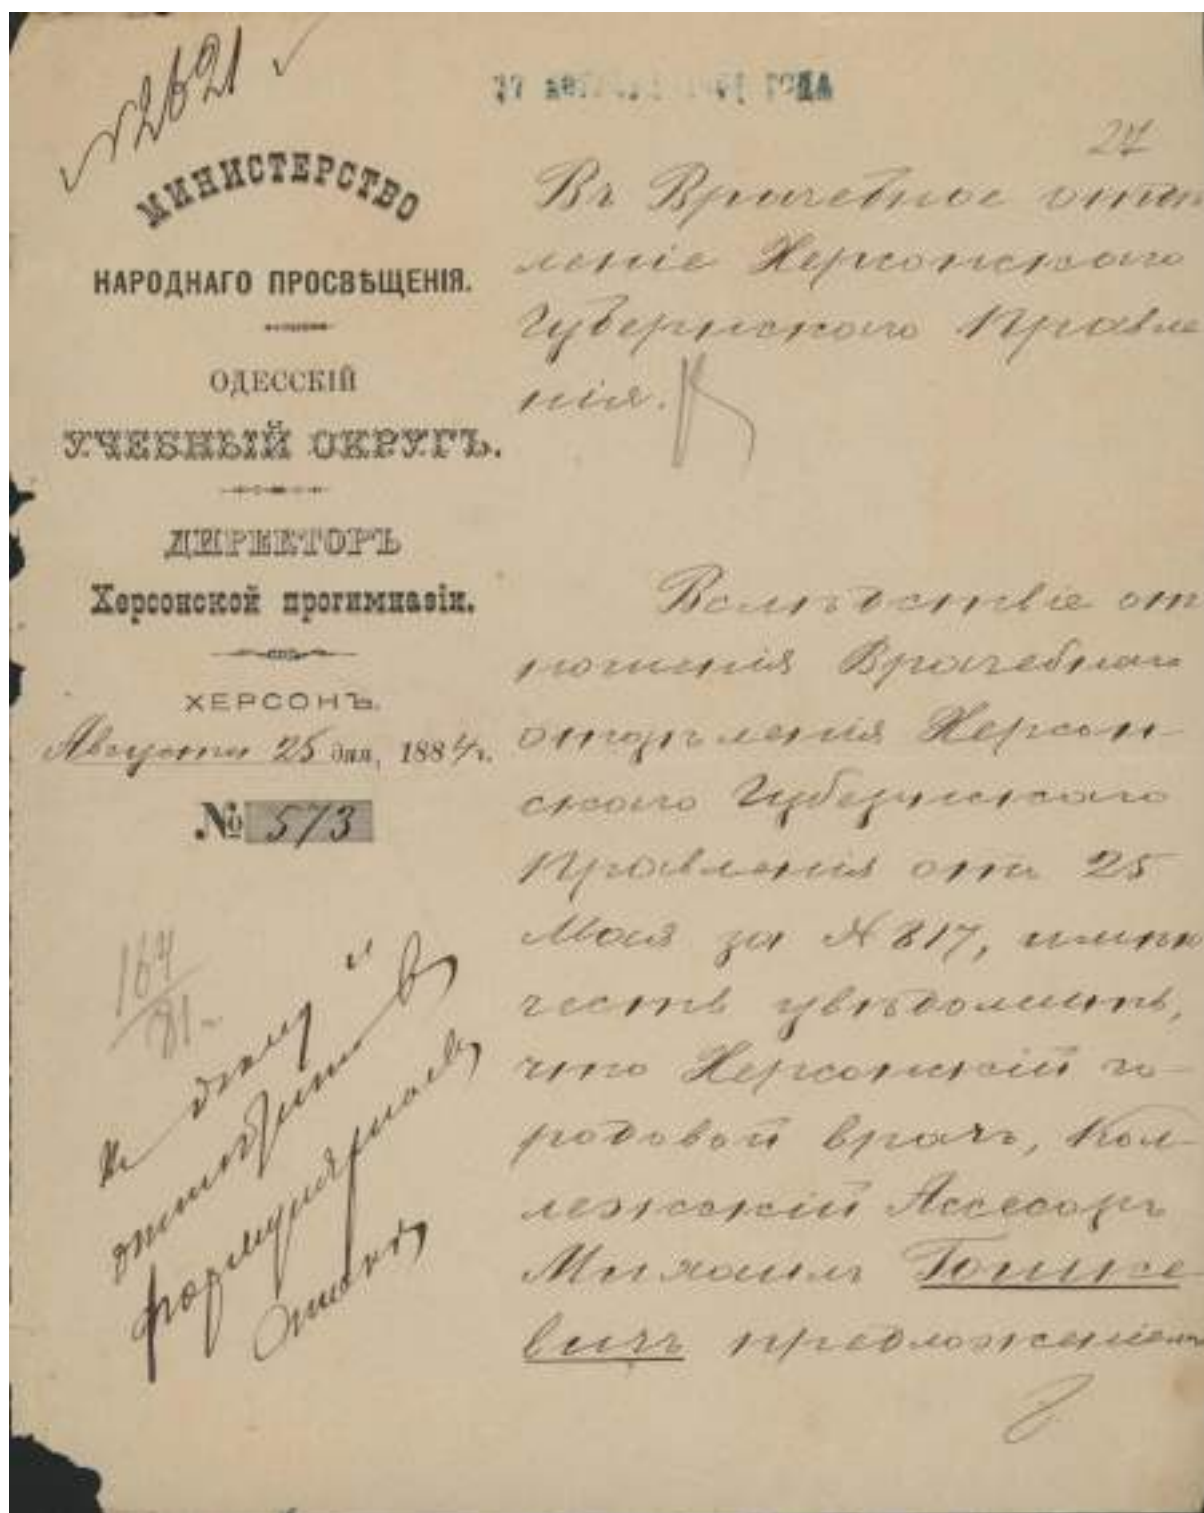 № 2621
27
МИНИСТЕРСТВО
НАРОДНАГО ПРОСВѢЩЕНІЯ.
ОДЕССКІЙ
УЧЕБНЫЙ ОКРУГЪ.
ДИРЕКТОРЪ
Херсонской прогимназіи.
ХЕРСОНЪ.
Августа 25 дня, 1884 г.
№ 573
164
81
формулярный
Въ Врачебное отдѣ
леніе Херсонскаго
Губернскаго Правле
нія.
Вслѣдствіе от
ношенія Врачебнаго
отдѣленія Херсон
скаго Губернскаго
Правленія отъ 25
Мая за № 817, имѣю
честь увѣдомить,
что Херсонскій го-
родовой врачъ, Кол
лежскій Ассесоръ
Михаилъ Гошке
вичъ предложеніемъ